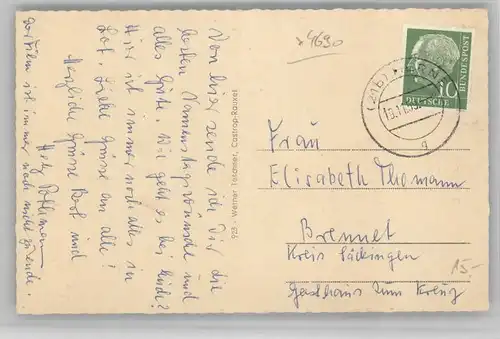 Von hier sende ich Dir die
besten Namenstagswünsche und
alles Gute. Wie geht es bei Euch?
Hier ist immer noch alles in
Lot. Liebe Grüße an alle!
Herzliche Grüße Bert und
Dortchen ist immer noch nicht zu Ende.
923 - Werner Tötemeier, Castrop-Rauxel
4690
DEUTSCHE
BUNDESPOST
10
Frau
Elisabeth Thomann
Brennet
Kreis Säckingen
Gasthaus zum Kreuz
15.-